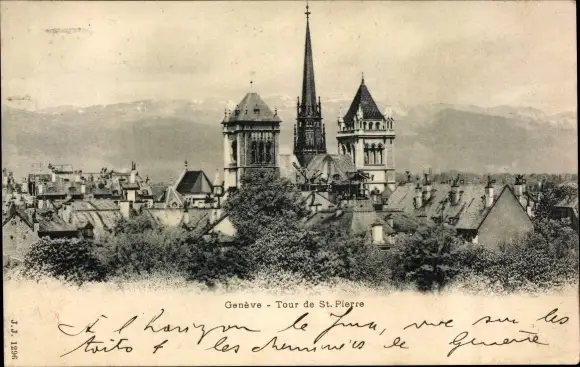 Genève - Tour de St. Pierre
J. J. 1296
A l'horizon le Jura, vue sur les
toits & les cheminées de Genève